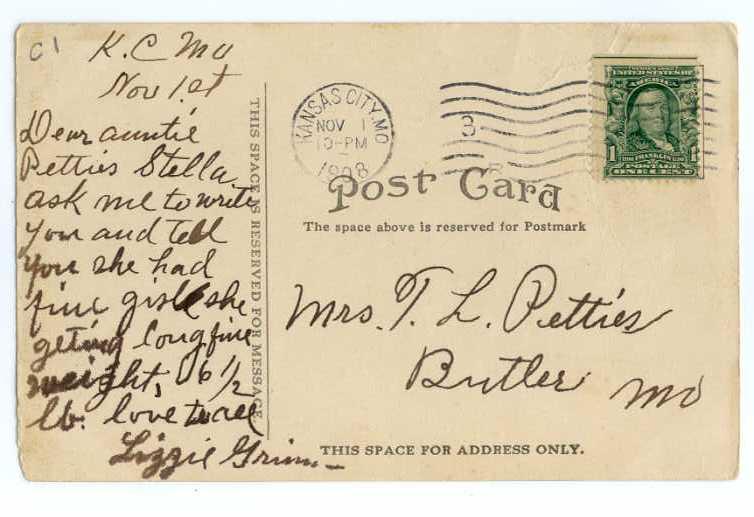 C1
K.C Mo
Nov 1st
Dear auntie
Petties Stella
ask me to write
you and tell
you she had
fine girl she
geting long fine
weight, 6 1/2
lb. love to all
Lizzie Grimm
THIS SPACE IS RESERVED FOR MESSAGE.
KANSAS CITY, MO
NOV 1
10-PM
1908
3
UNITED STATES OF
AMERICA
1 FRANKLIN 1
POSTAGE
ONE CENT
Post Card
The space above is reserved for Postmark
Mrs. T. L. Petties
Butler Mo
THIS SPACE FOR ADDRESS ONLY.